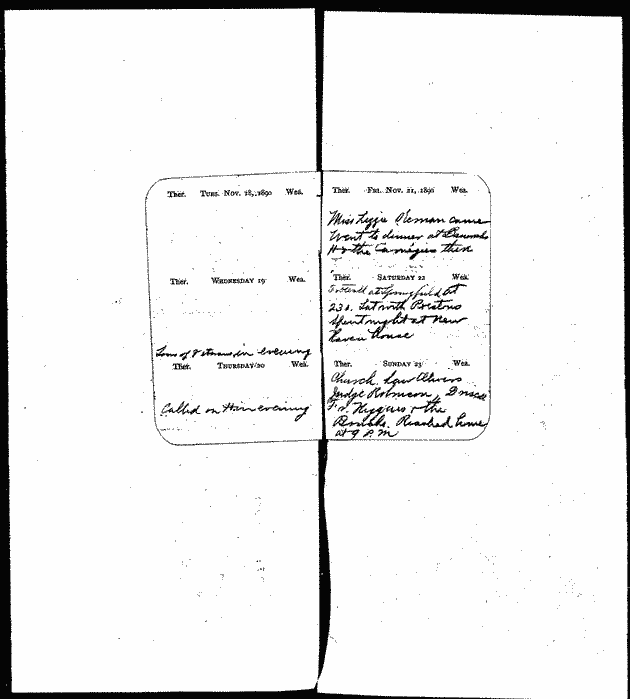 Ther. Tues. Nov. 18, 1890 Wea.
Ther. Wednesday 19 Wea.
Sons of Veterans in evening
Ther. Thursday 20 Wea.
Called on H in evening
Ther. Fri. Nov. 21, 1890 Wea.
Miss Lizzie came
Went to dinner at
H & the there
Ther. Saturday 22 Wea.
Football at Springfield at
230. Sat with
Spent night at New
Haven House
Ther. Sunday 23 Wea.
Church. Saw
Judge Robinson,
& the
Reached home
at 9 P.M